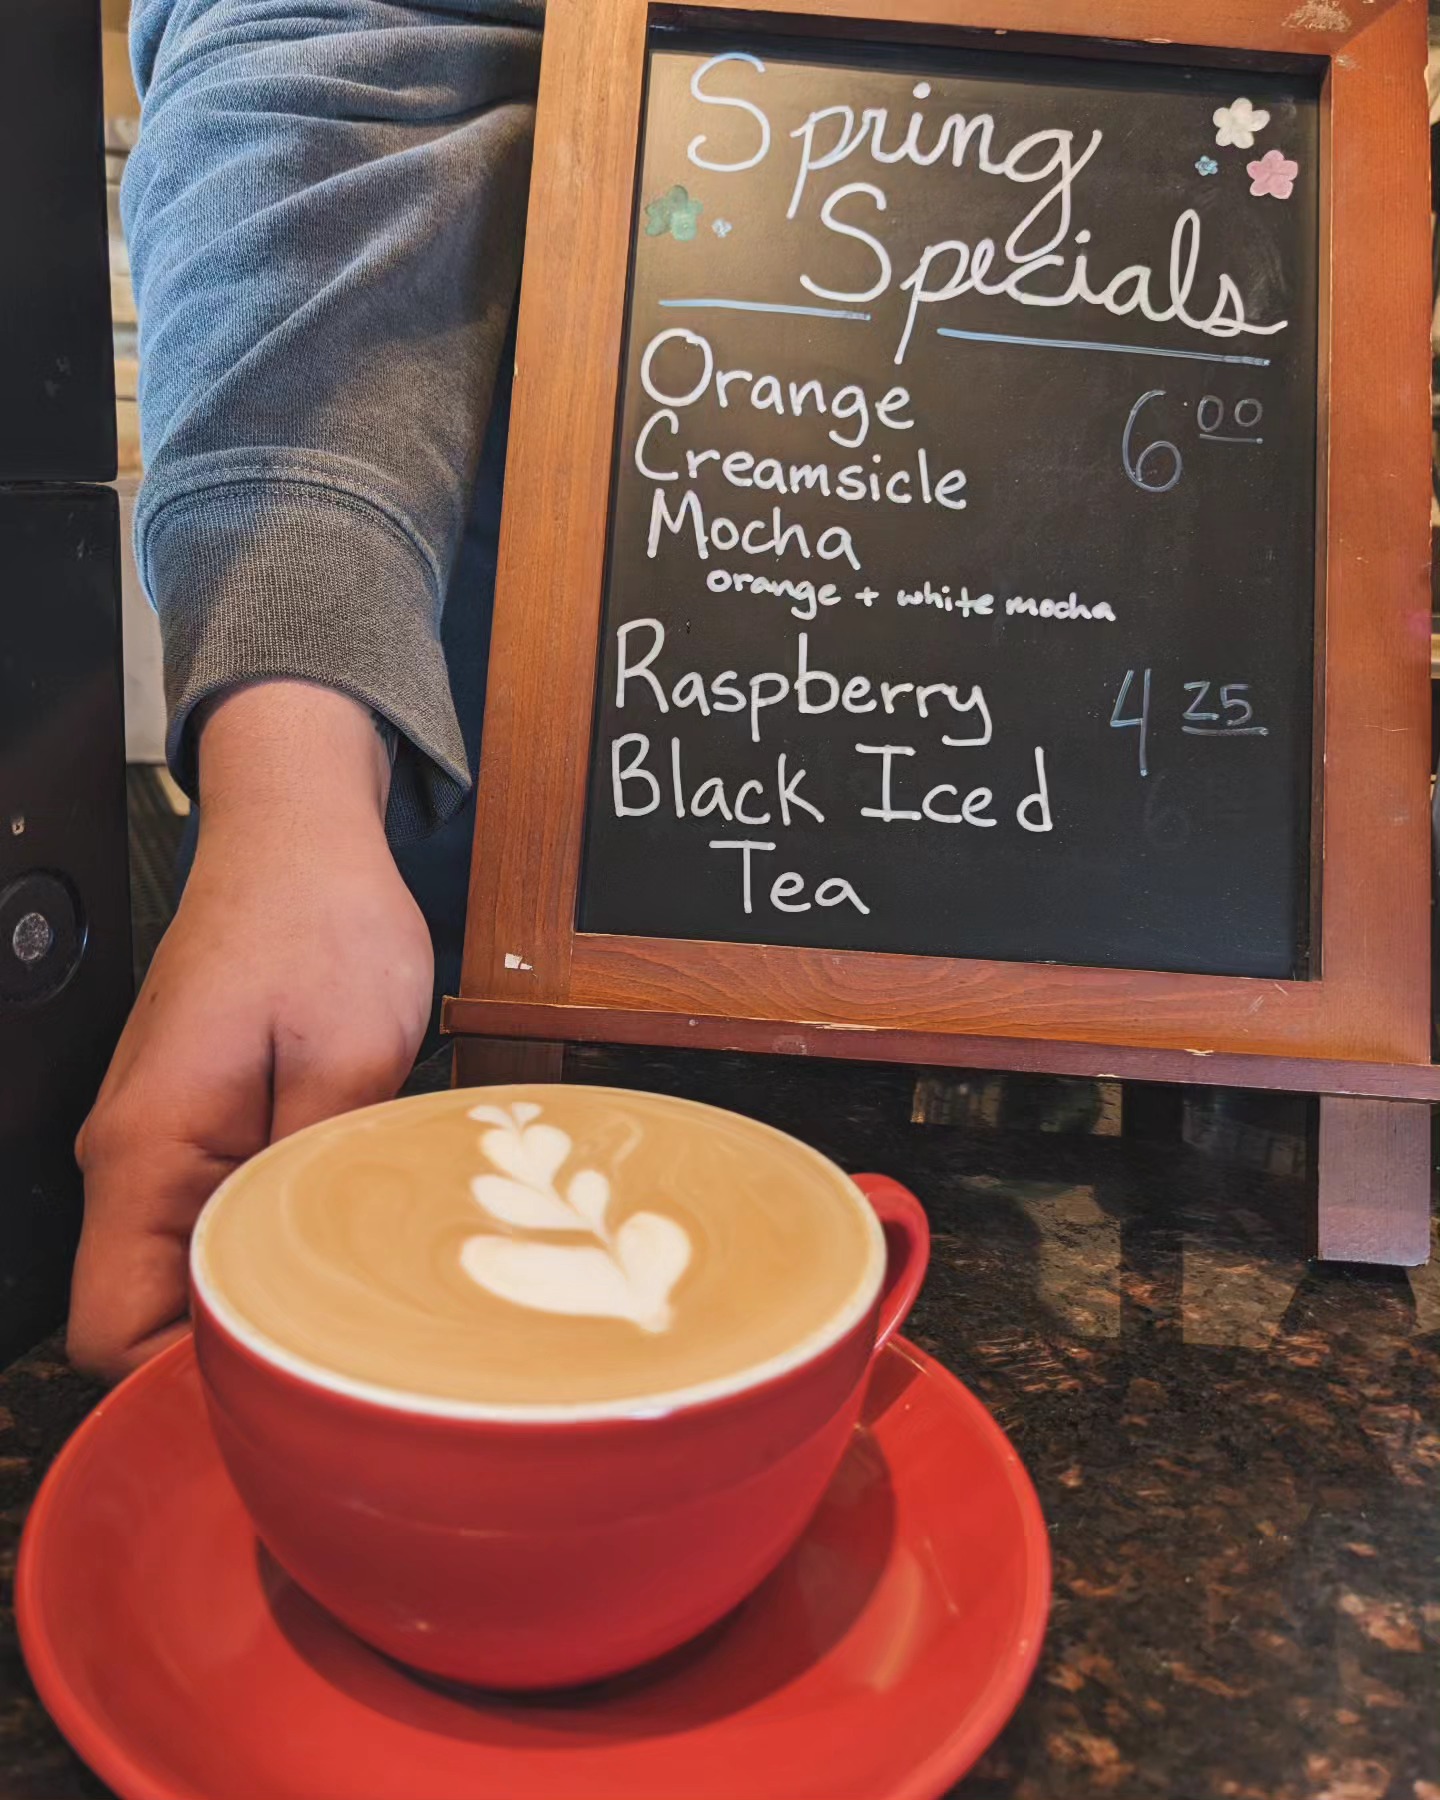 Spring
Specials
Orange 6 00
Creamsicle
Mocha
orange + white mocha
Raspberry 4 25
Black Iced
Tea